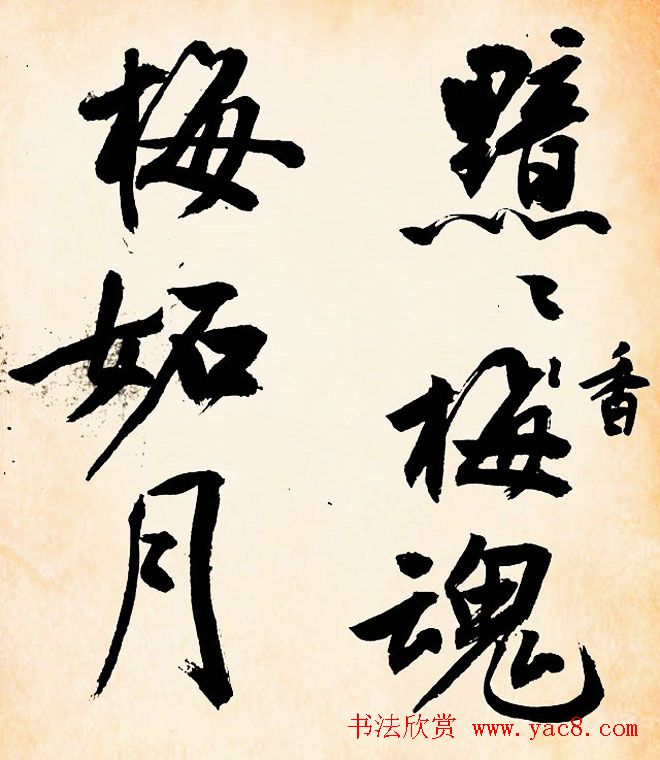 黯〻梅魂
香
梅妬月
书法欣赏 www.yac8.com